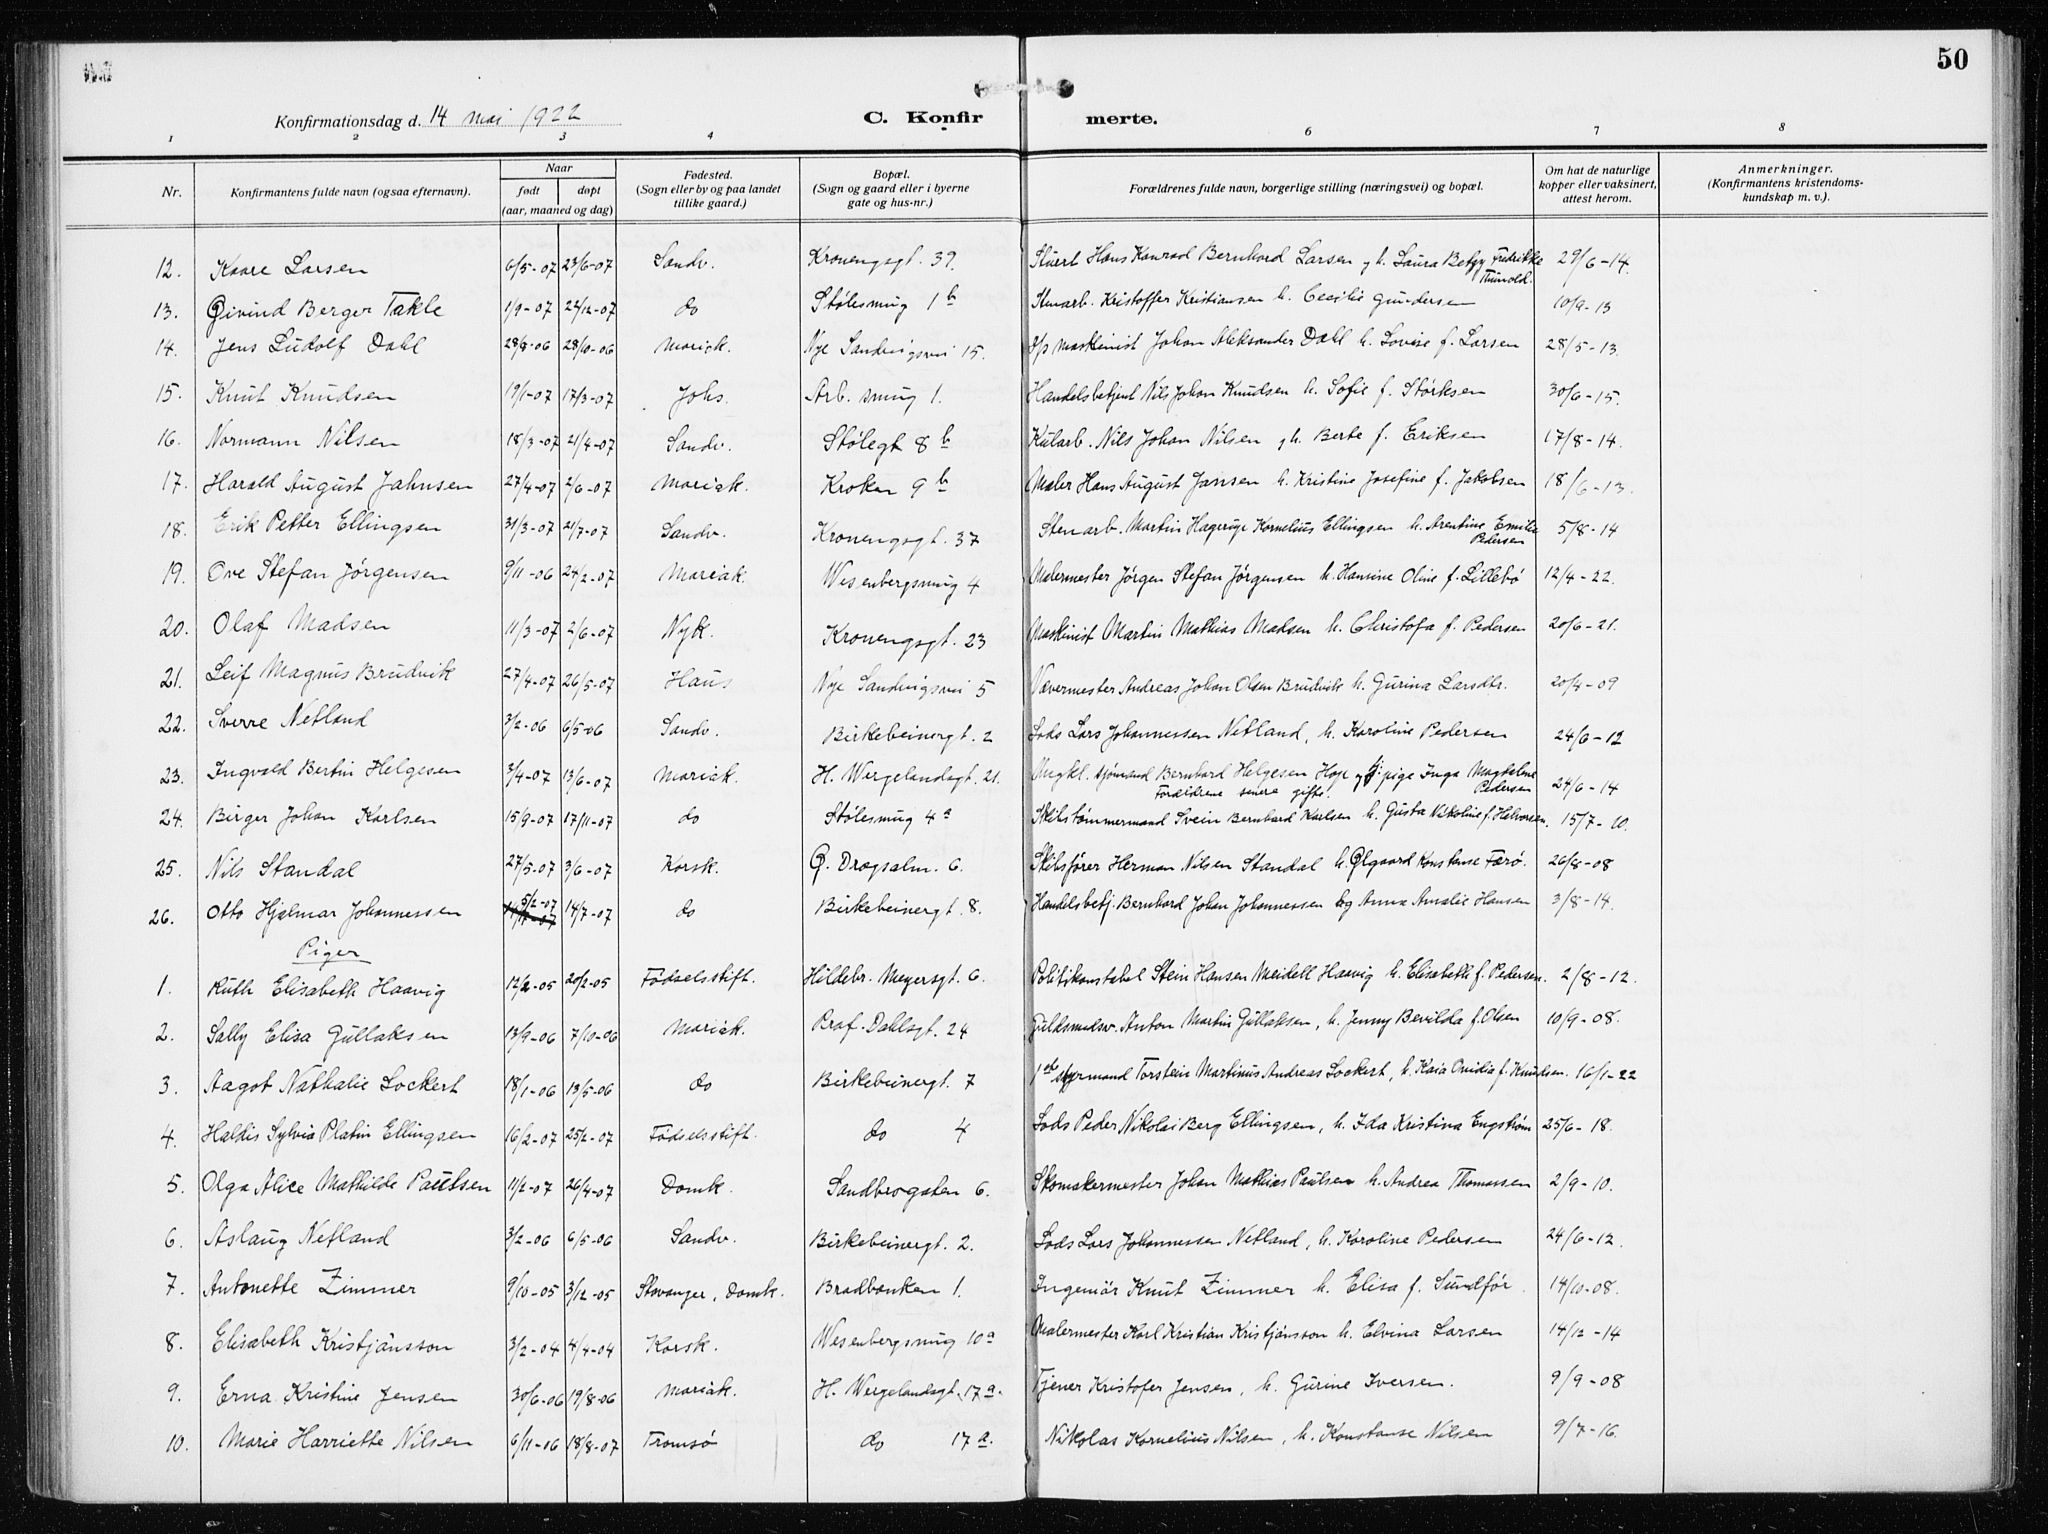 50
Konfirmationsdag d. 14 mai 1922
C. Konfir merte.
1 2 3 4 6 7 8
Nr. Konfirmantens fulde navn (ogsaa efternavn). Naar født døpt (aar, maaned og dag) Fødested. (Sogn eller by og paa landet tillike gaard.) Bopæl. (Sogn og gaard eller i byerne gate og hus-nr.) Forældrenes fulde navn, borgerlige stilling (næringsvei) og bopæl. Om hat de naturlige kopper eller vaksinert, attest herom. Anmerkninger. (Konfirmantens kristendoms-kundskap m. v.).
12. Kaare Larsen 6/5-07 23/6-07 Sandv. Kronengsgt. 39. Stuert Hans Konrad Bernhard Larsen og h. Laura Betzy Fredrikke Thunold. 29/6-14.
13. Øivind Berger Takle 1/9-07 22/12-07 do Stølesmug 1 b Stenarb. Kristoffer Kristiansen h. Cecilie Gundersen 10/9-13
14. Jens Ludolf Dahl 28/8-06 28/10-06 Mariak. Nye Sandvigsvei 15. d/p maskinist Johan Aleksander Dahl h. Lovise f. Larsen 28/5-13.
15. Knut Knudsen 19/1-07 17/3-07 Johs. Arb. smug 1. Handelsbetjent Nils Johan Knudsen h. Sofie f. Størksen 30/6-15.
16. Normann Nilsen 18/3-07 21/4-07 Sandv. Stølegt 8 b Kularb. Nils Johan Nilsen og h. Berte f. Eriksen 17/8-14.
17. Harald August Jahnsen 27/4-07 2/6-07 Mariak. Kroken 9 b Maler Hans August Jansen h. Kristine Josefine f. Jakobsen 18/6-13.
18. Erik Petter Ellingsen 31/3-07 21/7-07 Sandv. Kronengsgt. 37 Stenarb. Martin Hagerup Kornelius Ellingsen h. Arentine Emilie Pedersen 5/8-14
19. Ove Stefan Jörgensen 9/11-06 24/2-07 Mariak. Wesenbergsmug 4 Malermester Jörgen Stefan Jörgensen h. Hansine Oline f. Lillebö 12/4-22.
20. Olaf Madsen 11/3-07 2/6-07 Nyk. Kronengsgt. 23 Maskinist Martin Mathias Madsen h. Christofa f. Pedersen 20/6-21.
21. Leif Magnus Brudvik 27/4-07 26/5-07 Haus Nye Sandvigsvei 5 Vævermester Andreas Johan Olsen Brudvik h. Gurina Larsdtr. 20/4-09
22. Sverre Netland 3/2-06 6/5-06 Sandv. Birkebeinergt. 2 Lods Lars Johannessen Netland, h. Karoline Pedersen 24/6-12
23. Ingvald Bertin Helgesen 3/4-07 13/6-07 Mariak. H. Wergelandsgt. 21. Ungkl. sjømand Bernhard Helgesen Hope og pige Inga Magdalene Pedersen Forældrene senere gifte. 24/6-14
24. Birger Johan Karlsen 15/9-07 17/11-07 do Stölesmug 4 a Skibstömmermand Svein Bernhard Karlsen h. Gusta Nikoline f. Halvorsen. 15/7-10.
25. Nils Standal 27/5-07 3/6-07 Korsk. Ö. Dregsalm. 6. Skibsfører Herman Nilsen Standal h. Ølgaard Konstanse Færö. 26/8-08
26. Otto Hjalmar Johannessen 5/2-07 14/7-07 do Birkebeinergt. 8. Handelsbetj. Bernhard Johan Johannessen og Anna Amalie Hansen 3/8-14.
Piger
1. Ruth Elisabeth Haavig 12/2-05 20/2-05 Fødselsstift. Hildebr. Meyersgt. 6. Politikonstabel Stein Hansen Meidell Haavig h. Elisabeth f. Pedersen. 2/8-12.
2. Sally Elisa Gullaksen 13/9-06 7/10-06 Mariak. Prof. Dahlsgt. 24 Guldsmedsv. Anton Martin Gullaksen, h. Jenny Bevilda f. Olsen 10/9-08.
3. Aagot Nathalie Lockert 18/1-06 13/5-06 do Birkebeinergt. 7 1ste styrmand Torstein Martinus Andreas Lockert, h. Kaia Ovidia f. Knudsen. 16/1-22
4. Haldis Sylvia Platin Ellingsen 16/2-07 25/2-07 Fødselsstift. do 4 Lods Peder Nikolai Berg Ellingsen, h. Ida Kristina Engström 25/6-18.
5. Olga Alice Mathilde Paulsen 11/2-07 26/4-07 Domk. Sandbrogaten 6. Skomakermester Johan Mathias Paulsen h. Andrea Thomassen 2/9-10.
6. Aslaug Netland 3/2-06 6/5-06 Sandv. Birkebeinergt. 2. Lods Lars Johannessen Netland, h. Karoline Pedersen 24/6-12.
7. Antonette Zimmer 9/10-05 3/12-05 Stavanger, Domk. Bradbenken 1. Ingeniör Knut Zimmer h. Elisa f. Sundför. 14/10-08.
8. Elisabeth Kristjánsson 3/2-04 4/4-04 Korsk. Wesenbergsmug 10 a Malermester Karl Kristian Kristjánsson h. Elvina Larsen 14/12-14
9. Erna Kristine Jensen 30/6-06 19/8-06 Mariak. H. Wergelandsgt. 17 a. Tjener Kristofer Jensen, h. Gurine Iversen. 9/9-08
10. Marie Harriette Nilsen 6/11-06 18/8-07 Tromsö do 17 a. Nikolas Kornelius Nilsen, h. Konstanse Nilsen 9/7-16.